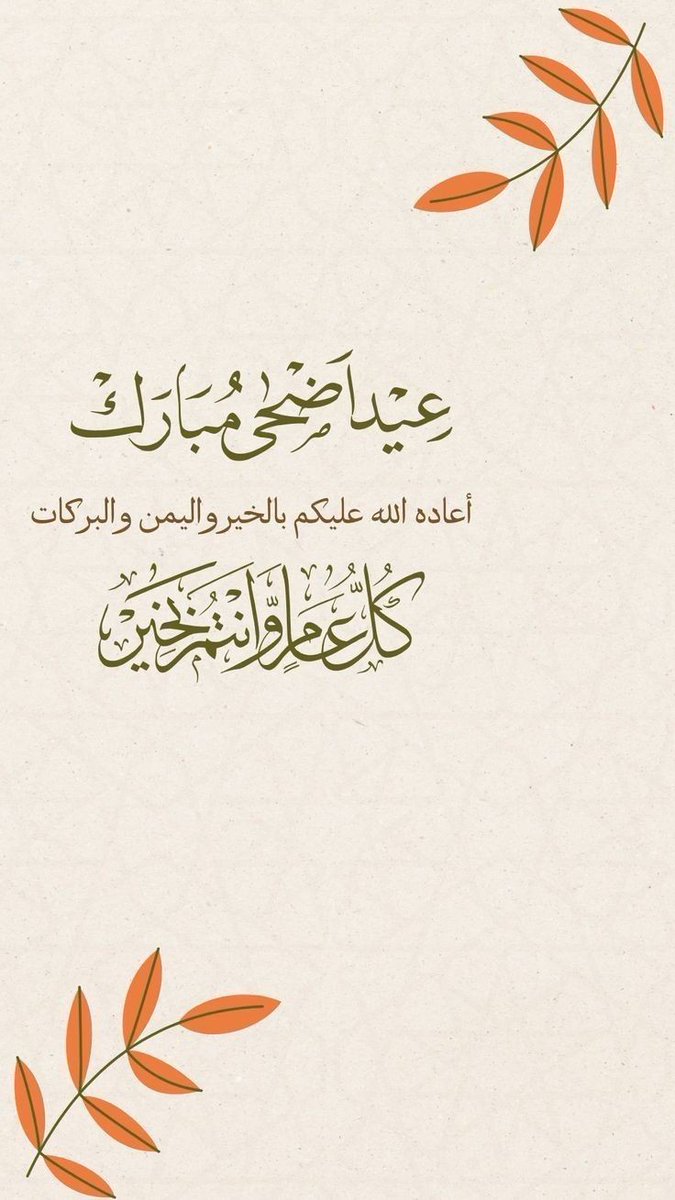 عِيْد اَضْحٰى مُبَارَكْ
أعاده الله عليكم بالخير واليمن والبركات
كُلُّ عَامٍ وَّاَنْتُمْ بِخَيْرٍ